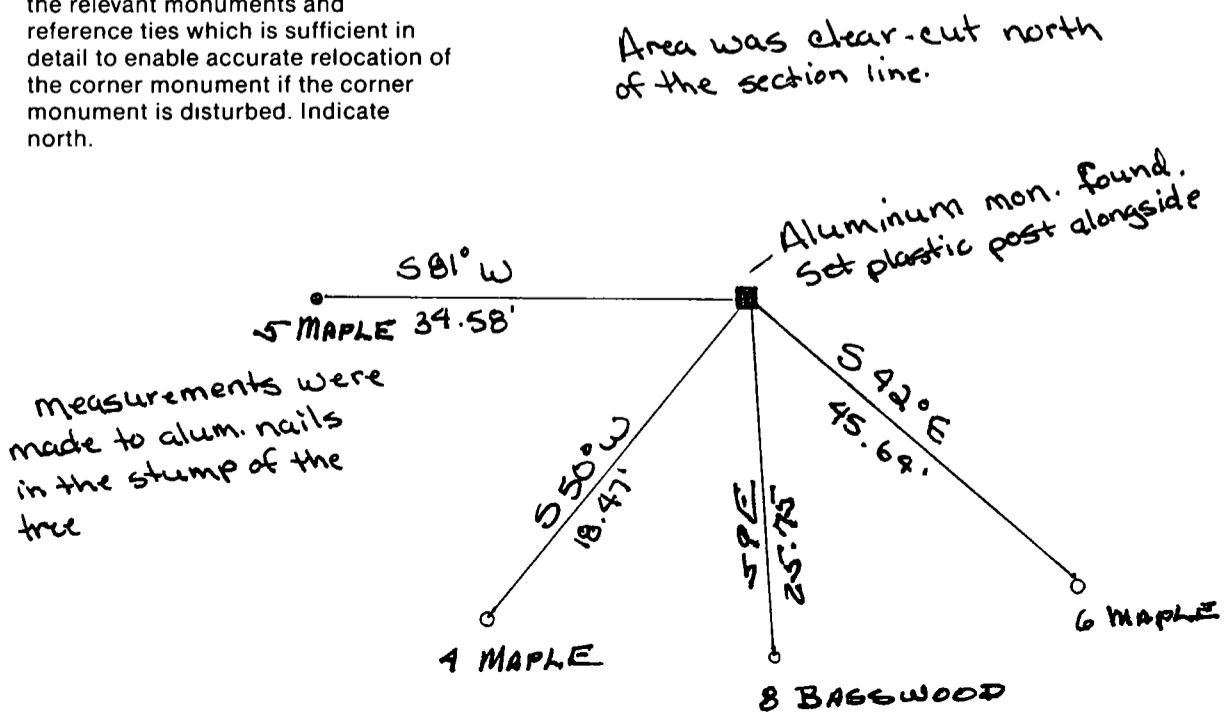 the relevant monuments and
reference ties which is sufficient in
detail to enable accurate relocation of
the corner monument if the corner
monument is disturbed. Indicate
north.
Area was clear-cut north
of the section line.
Aluminum mon. found.
Set plastic post alongside
S81°W
5 MAPLE 34.58'
measurements were
made to alum. nails
in the stump of the
tree
S50°W
18.47'
S9E
25.75
S42°E
4 MAPLE
8 BASSWOOD
6 MAPLE